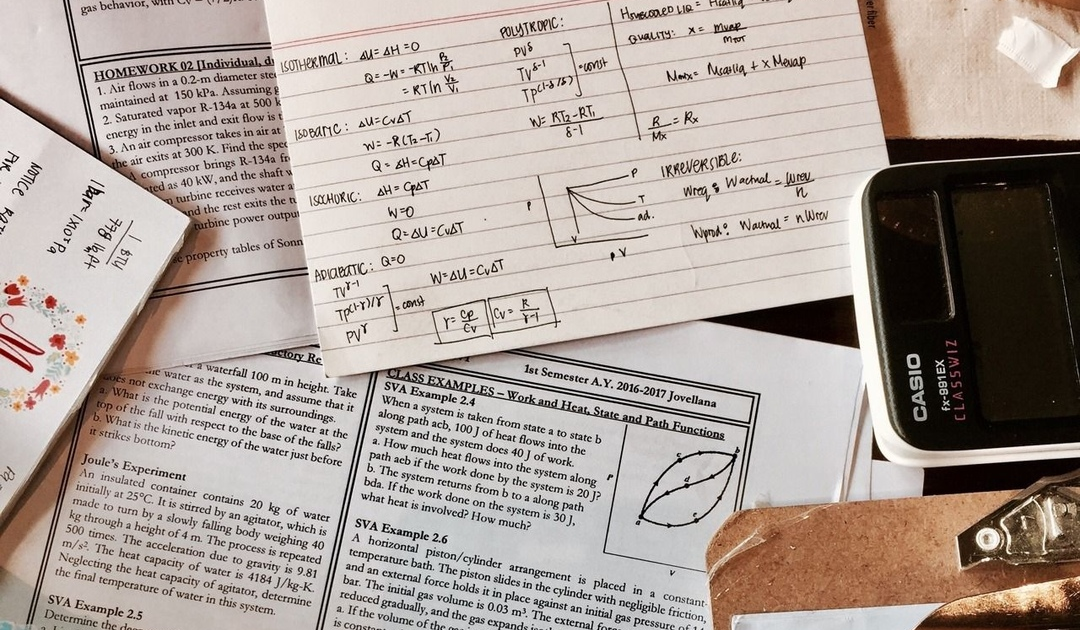 gas behavior, with
HOMEWORK 02 [Individual, d
1. Air flows in a 0.2-m diameter ste
maintained at 150 kPa. Assuming
2. Saturated vapor R-134a at 500 k
energy in the inlet and exit flow is
3. An air compressor takes in air at
the air exits at 300 K. Find the spe
compressor brings R-134a fr
ted as 40 kW, and the shaft
turbine receives water a
and the rest exits the tu
turbine power outpu
property tables of Sonn
ISOTHERMAL: ΔU = ΔH = 0
Q = -W = -RT ln P₂/P₁
= RT ln V₂/V₁
ISOBARIC: ΔU = CvΔT
W = -R(T₂-T₁)
Q = ΔH = CpΔT
ISOCHORIC: ΔH = CpΔT
W = 0
Q = ΔU = CvΔT
ADIABATIC: Q = 0
W = ΔU = CvΔT
TV^γ-1
TP^(1-γ)/γ
PV^γ
= const
γ = Cp/Cv
Cv = R/γ-1
POLYTROPIC:
PV^δ
TV^δ-1
TP^(1-δ/δ)
= const
W = RT₂-RT₁/δ-1
QUALITY: x = mvap/mTOT
R/Mx = Rx
P
T
ad.
V
P
V
IRREVERSIBLE:
Wreq: Wactual = Wrev/n
Wprod: Wactual = nWrev
NOTICE
1 bar = 1x10⁵ Pa
1 BTU
778 lb ft
M
CASIO
fx-991EX
CLASSWIZ
a waterfall 100 m in height. Take
the water as the system, and assume that it
does not exchange energy with its surroundings.
a. What is the potential energy of the water at the
top of the fall with respect to the base of the falls?
b. What is the kinetic energy of the water just before
it strikes bottom?
Joule's Experiment
An insulated container contains 20 kg of water
initially at 25°C. It is stirred by an agitator, which is
made to turn by a slowly falling body weighing 40
kg through a height of 4 m. The process is repeated
500 times. The acceleration due to gravity is 9.81
m/s². The heat capacity of water is 4184 J/kg-K.
Neglecting the heat capacity of agitator, determine
the final temperature of water in this system.
SVA Example 2.5
1st Semester A.Y. 2016-2017 Jovellana
CLASS EXAMPLES – Work and Heat, State and Path Functions
SVA Example 2.4
When a system is taken from state a to state b
along path acb, 100 J of heat flows into the
system and the system does 40 J of work.
a. How much heat flows into the system along
path aeb if the work done by the system is 20 J?
b. The system returns from b to a along path
bda. If the work done on the system is 30 J,
what heat is involved? How much?
P
c
b
d
a
e
V
SVA Example 2.6
A horizontal piston/cylinder arrangement is placed in a constant-
temperature bath. The piston slides in the cylinder with negligible friction,
and an external force holds it in place against an initial gas pressure of 14
bar. The initial gas volume is 0.03 m³. The external
reduced gradually, and the gas expands
a. If the volume of the